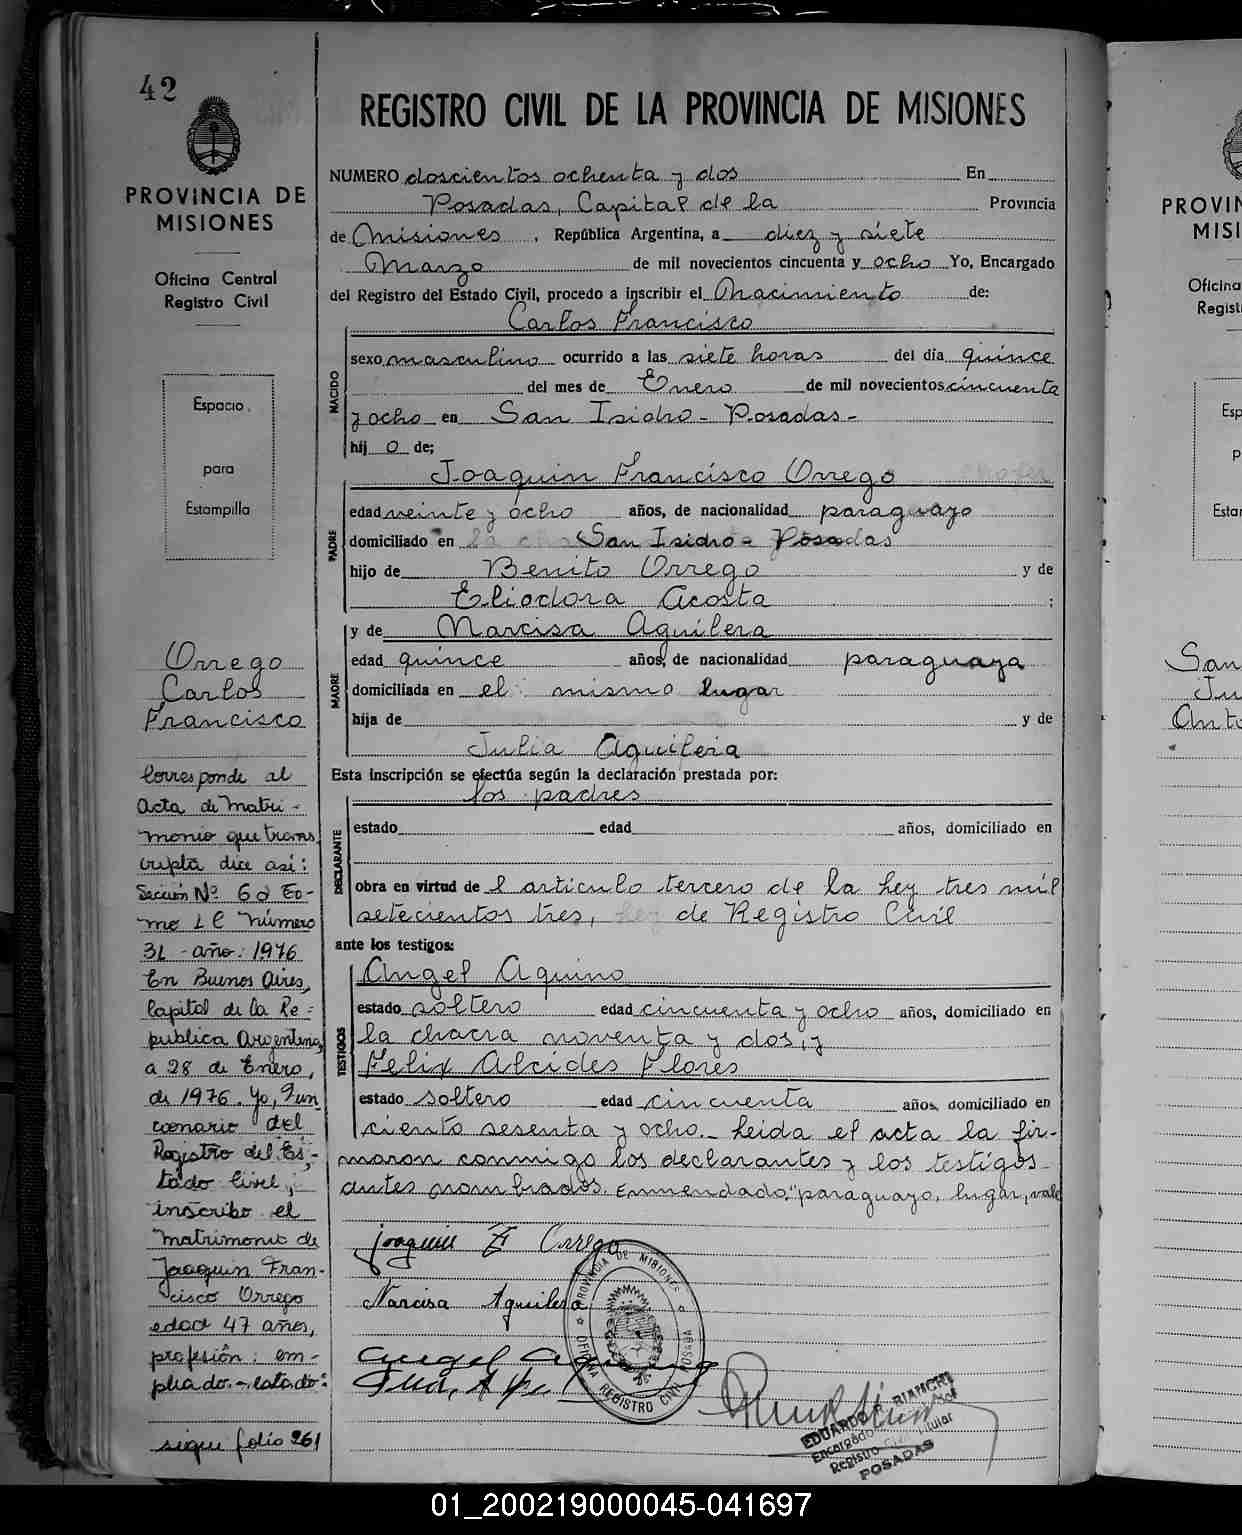 42
PROVINCIA DE
MISIONES
Oficina Central
Registro Civil
Espacio
para
Estampilla
Orrego
Carlos
Francisco
Corresponde al
Acta de Matri-
monio que trans
cripta dice así:
Sección Nº 6ª To-
mo 1 C Número
31 - año: 1976
En Buenos Aires,
Capital de la Re=
publica Argentina,
a 28 de Enero,
de 1976. Yo, Fun
cionario del
Registro del Es-
tado Civil,
inscribo el
matrimonio de
Joaquin Fran-
cisco Orrego
edad 47 años,
profesión: em-
pleado.- estado:
sigue folio 261
REGISTRO CIVIL DE LA PROVINCIA DE MISIONES
NUMERO doscientos ochenta y dos En
Posadas, Capital de la Provincia
de Misiones, República Argentina, a diez y siete
Marzo de mil novecientos cincuenta y ocho Yo, Encargado
del Registro del Estado Civil, procedo a inscribir el Nacimiento de:
Carlos Francisco
NACIDO
sexo masculino ocurrido a las siete horas del día quince
del mes de Enero de mil novecientos cincuenta
y ocho en San Isidro - Posadas -
hij o de:
Joaquin Francisco Orrego
PADRE
edad veinte y ocho años, de nacionalidad paraguayo
domiciliado en San Isidro - Posadas
hijo de Benito Orrego y de
Eliodora Acosta ;
y de Narcisa Aguilera
MADRE
edad quince años, de nacionalidad paraguaya
domiciliada en el mismo lugar
hija de y de
Julia Aguilera
Esta inscripción se efectúa según la declaración prestada por:
los padres
DECLARANTE
estado edad años, domiciliado en
obra en virtud de l articulo tercero de la ley tres mil
setecientos tres, de Registro Civil
ante los testigos:
Angel Aquino
TESTIGOS
estado soltero edad cincuenta y ocho años, domiciliado en
la chacra noventa y dos, y
Felix Alcides Flores
estado soltero edad cincuenta años, domiciliado en
ciento sesenta y ocho.- Leida el acta la fir-
maron conmigo los declarantes y los testigos
antes nombrados. Enmendado: "paraguayo, lugar, vale
Joaquin F Orrego
Narcisa Aguilera
Angel Aquino
PROVINCIA DE MISIONES
OFICINA REGISTRO CIVIL POSADAS
EDUARDO R. BIANCHI
Encargado
Registro Civil Titular
POSADAS
PROVIN
MISI
Oficina
Regist
Esp
p
Estar
San
Ju
Anto
01_200219000045-041697